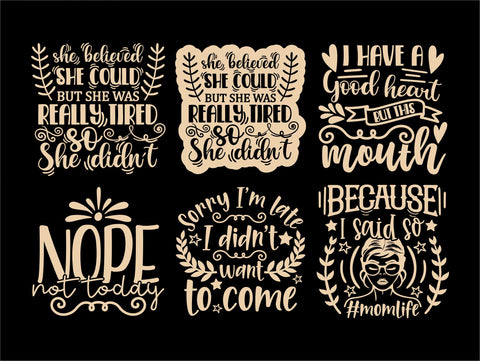 she believed
SHE COULD
BUT SHE WAS
REALLY TIRED
SO
She didn't
she believed
SHE COULD
BUT SHE WAS
REALLY TIRED
SO
She didn't
I HAVE A
Good heart
BUT THIS
mouth
NOPE
not today
Sorry I'm late
I didn't
want
to come
BECAUSE
I said so
#momlife